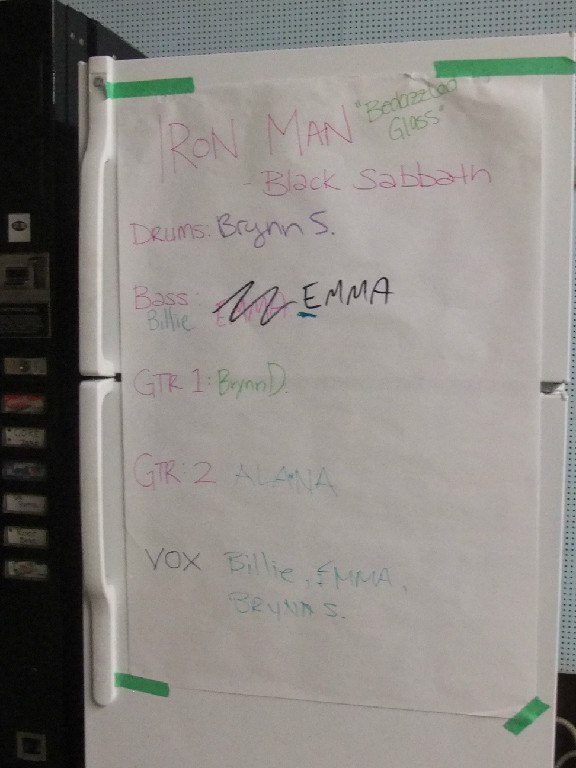 IRON MAN
"Bedazzled
Glass"
- Black Sabbath
DRUMS: Brynn S.
BASS: EMMA EMMA
Billie
GTR 1: Brynn D.
GTR: 2 ALANA
VOX Billie, EMMA,
BRYNN S.